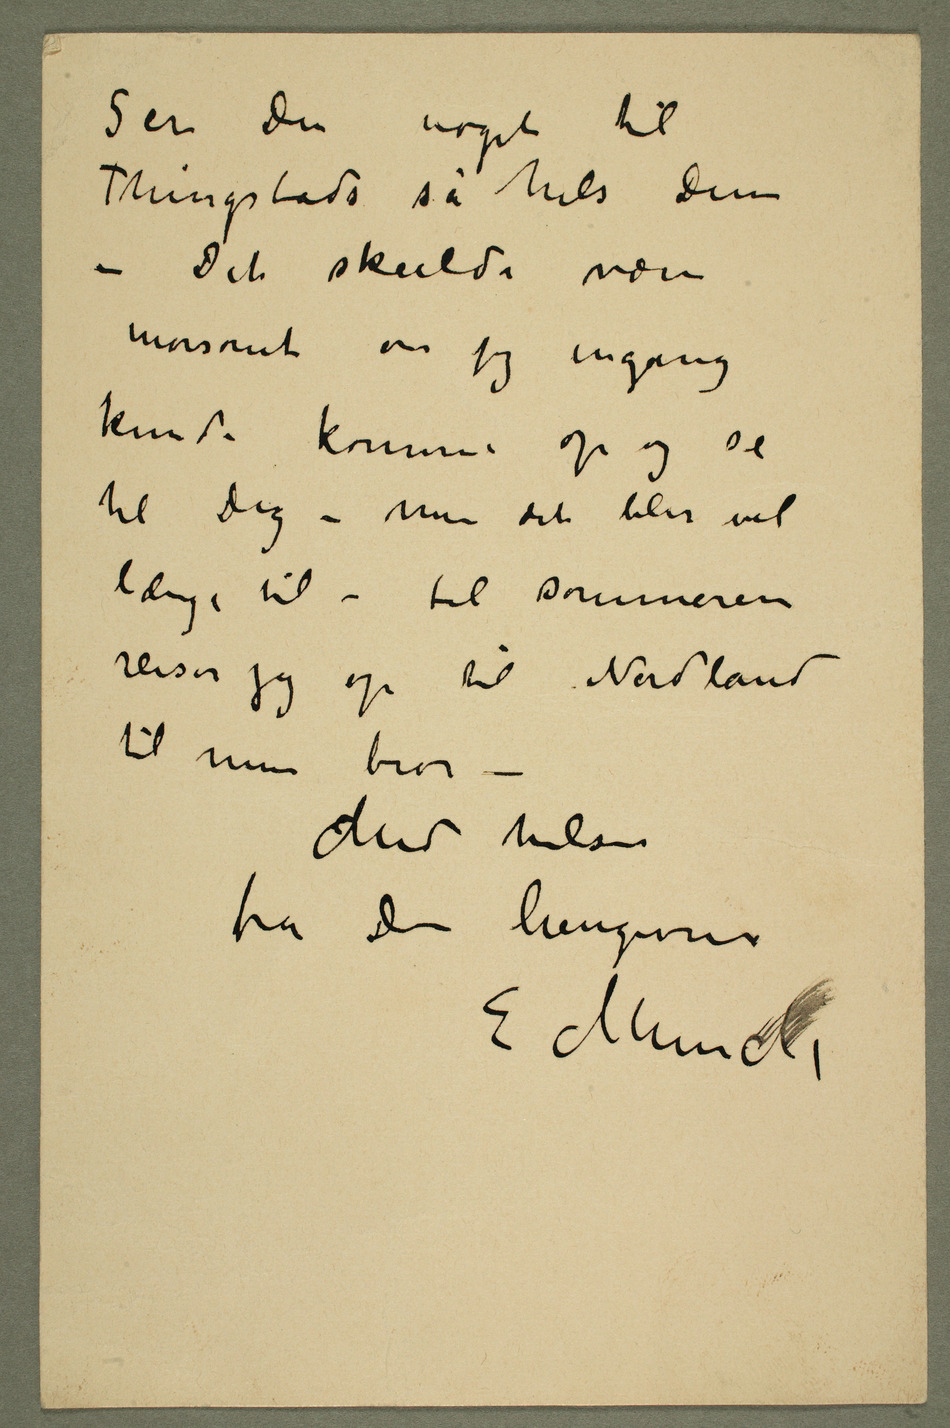 Ser du noget til
Thingstads så hils dem
– Det skulde være
morsomt om jeg engang
kunde komme op og se
til dig – men det blir vel
længe til – til sommeren
reiser jeg op til Nordland
til min bror –
Med hilsen
fra din hengivne
E Munch